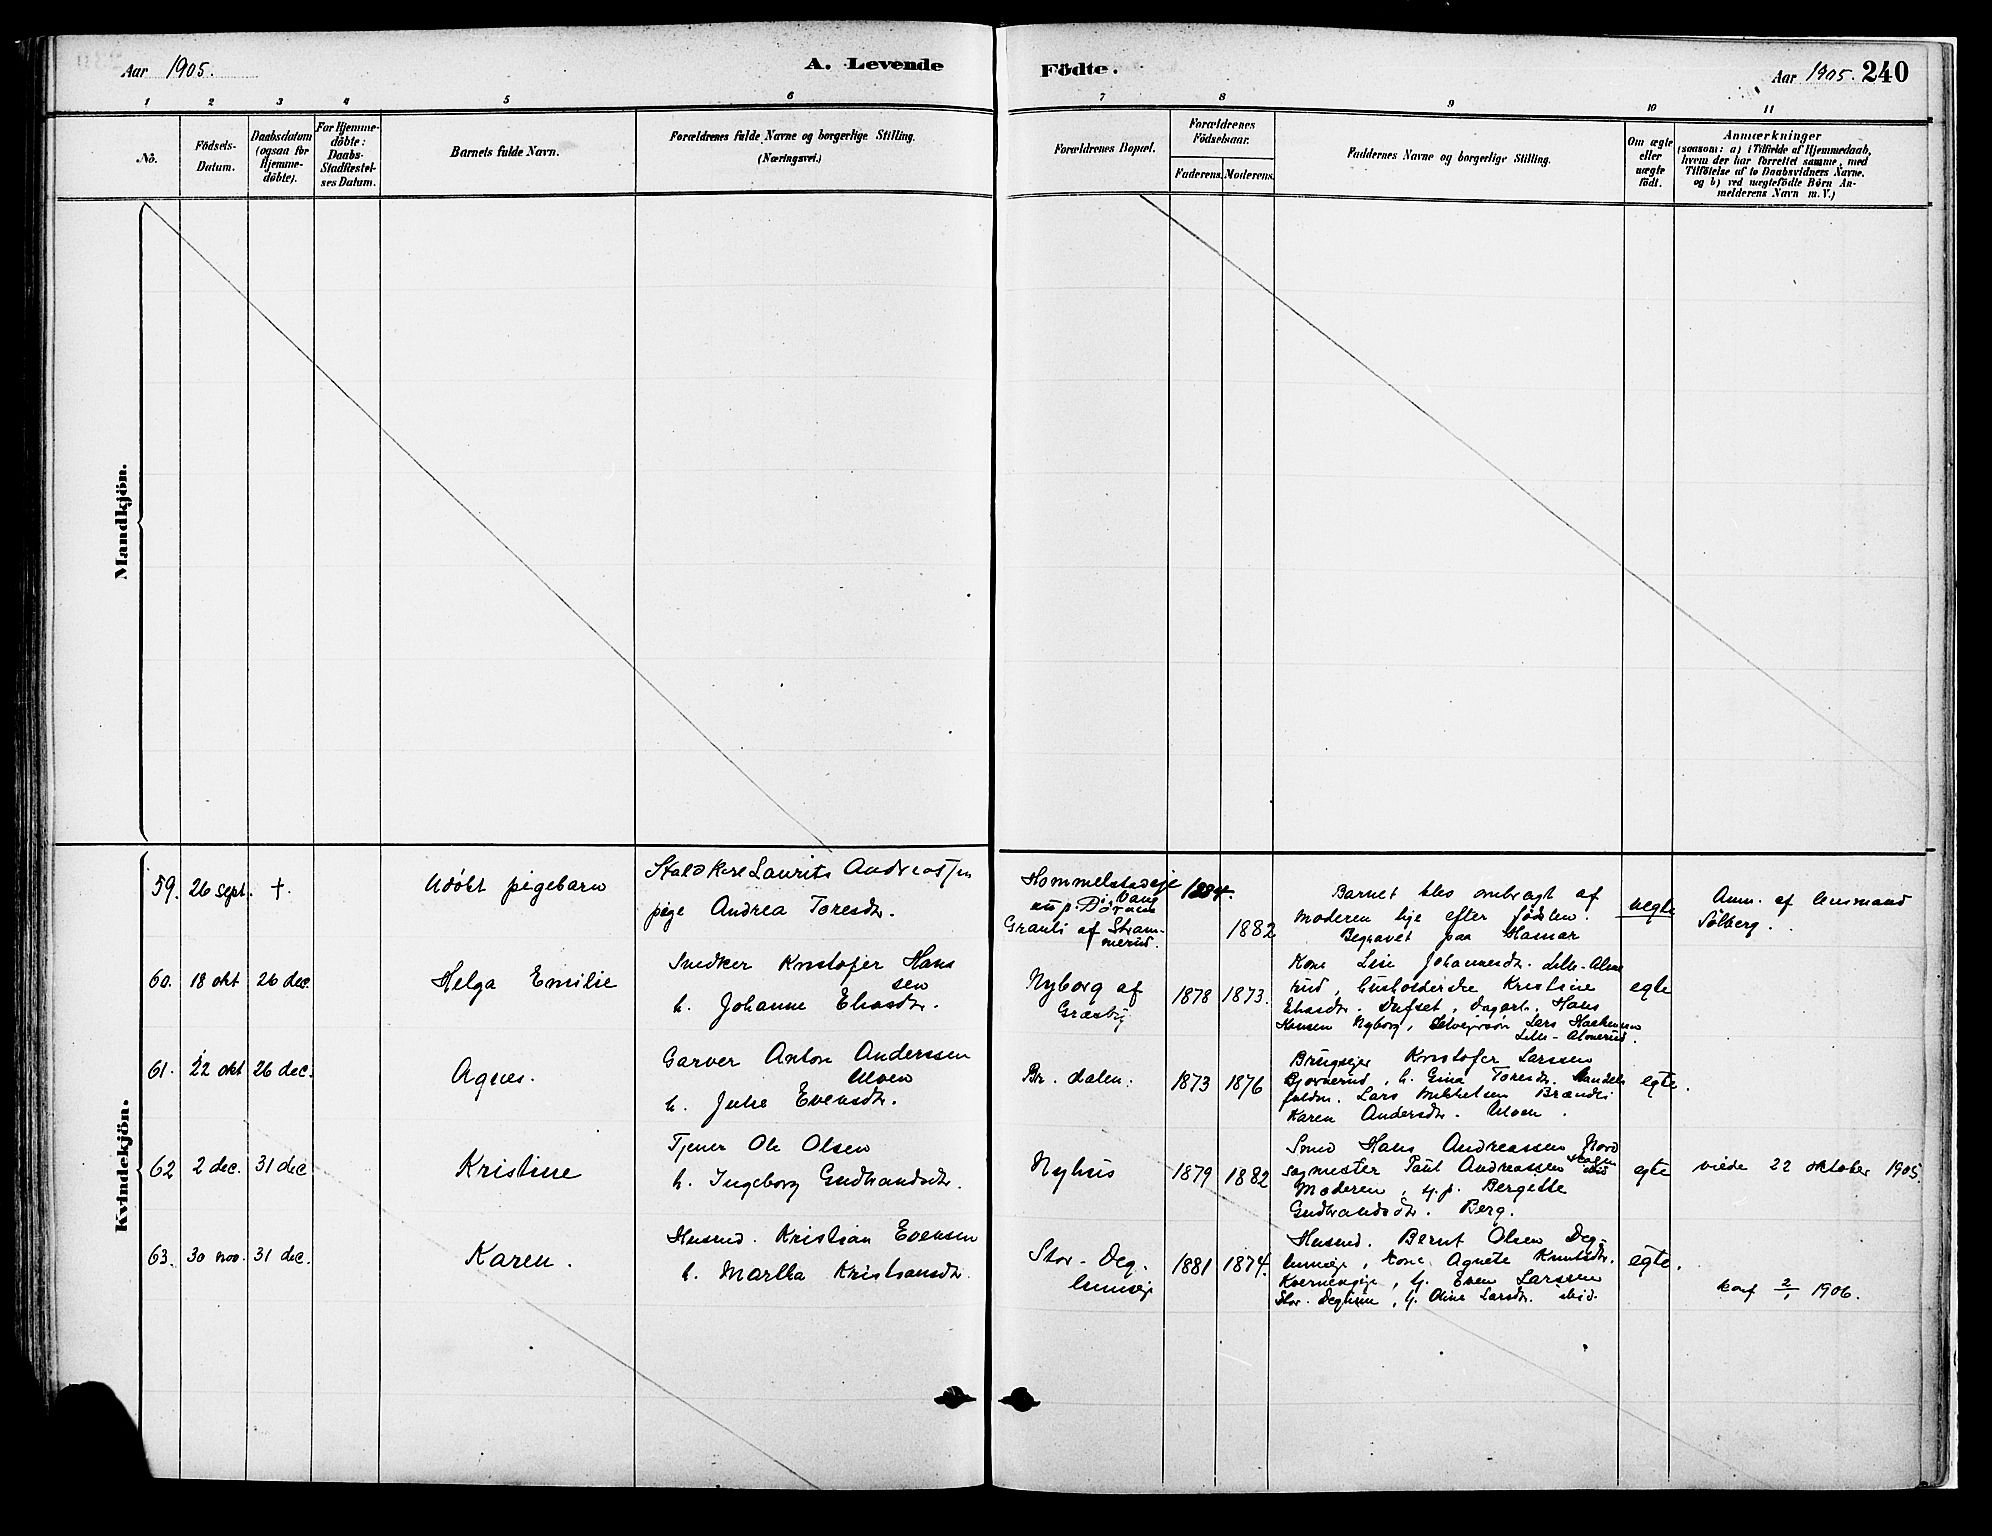 Aar 1905.
A. Levende
Födte.
Aar 1905. 240
1 2 3 4 5 6
7 8 9 10 11
No.
Födsels-
Datum.
Daabsdatum
(ogsaa for
Hjemme-
döbte).
For Hjemme-
döbte:
Daabs-
Stadfæstel-
ses Datum.
Barnets fulde Navn.
Forældrenes fulde Navne og borgerlige Stilling.
(Næringsvei.)
Forældrenes Bopæl.
Forældrenes
Födselsaar.
Faderens. Moderens.
Faddernes Navne og borgerlige Stilling.
Om ægte
eller
uægte
födt.
Anmærkninger
(saasom: a) i Tilfælde af Hjemmedaab,
hvem der har forrettet samme, med
Tilföielse af to Daabsvidners Navne.
og b) ved uægtefödte Börn An-
melderens Navn m. V.)
Mandkjön.
Kvindekjön.
59. 26 sept. †.
Udöbt pigebarn
Staldkarl Laurits Andreassen
pige Andrea Toresdtr.
Hommelstadeje
i Vang
Granli af Strom-
merud.
1884.
1882
Barnet blev ombragt af
moderen lige efter födslen.
Begravet paa Hamar
uegte
Anm. af lensmand
Solberg.
60. 18 okt 26 dec.
Helga Emilie
Snedker Kristofer Hans
sen
h. Johanne Eliasdtr.
Nyborg af
Græsby
1878 1873.
Kone Lise Johannesdtr. Lille-Alme
rud, husholderske Kristine
Eliasdtr. Dufset, dagarb. Hans
Hansen Nyborg, Selveiersön Lars Haakensen
Lille-Almerud.
egte
61. 22 okt 26 dec.
Agnes.
Garver Anton Anderssen
Moen
h. Julie Evensdtr.
Br. dalen.
1873 1876
Brugsejer Kristofer Larssen
Bjørnerud, h. Gina Toresdtr. Handels
fuldm. Lars Mikkelsen Brændli
Karen Andersdtr. Moen.
egte.
62 2 dec. 31 dec
Kristine
Tjener Ole Olsen
h. Ingeborg Gudbrandsdtr.
Nyhus
1879 1882
Smed Hans Andreassen Nord
skogen
sagmester Paul Andreassen ibid
Moderen, g.p. Bergitte
Gudbrandsdtr. Berg.
egte
viede 22 oktober 1905.
63. 30 nov. 31 dec.
Karen.
Husmd. Kristian Evensen
h. Martha Kristiansdtr.
Stor-Deg-
lumseje
1881 1874.
Husmd. Bernt Olsen Deg-
lumseje, kone Agnete Knutsdtr.
Kverneneje, g. Even Larssen
Stor-Deglum, g. Oline Larsdtr. ibid.
egte.
konf 2/1 1906.